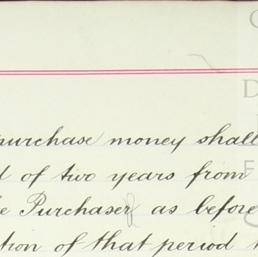 purchase money shall
d of two years from
e Purchaser as before
tion of that period